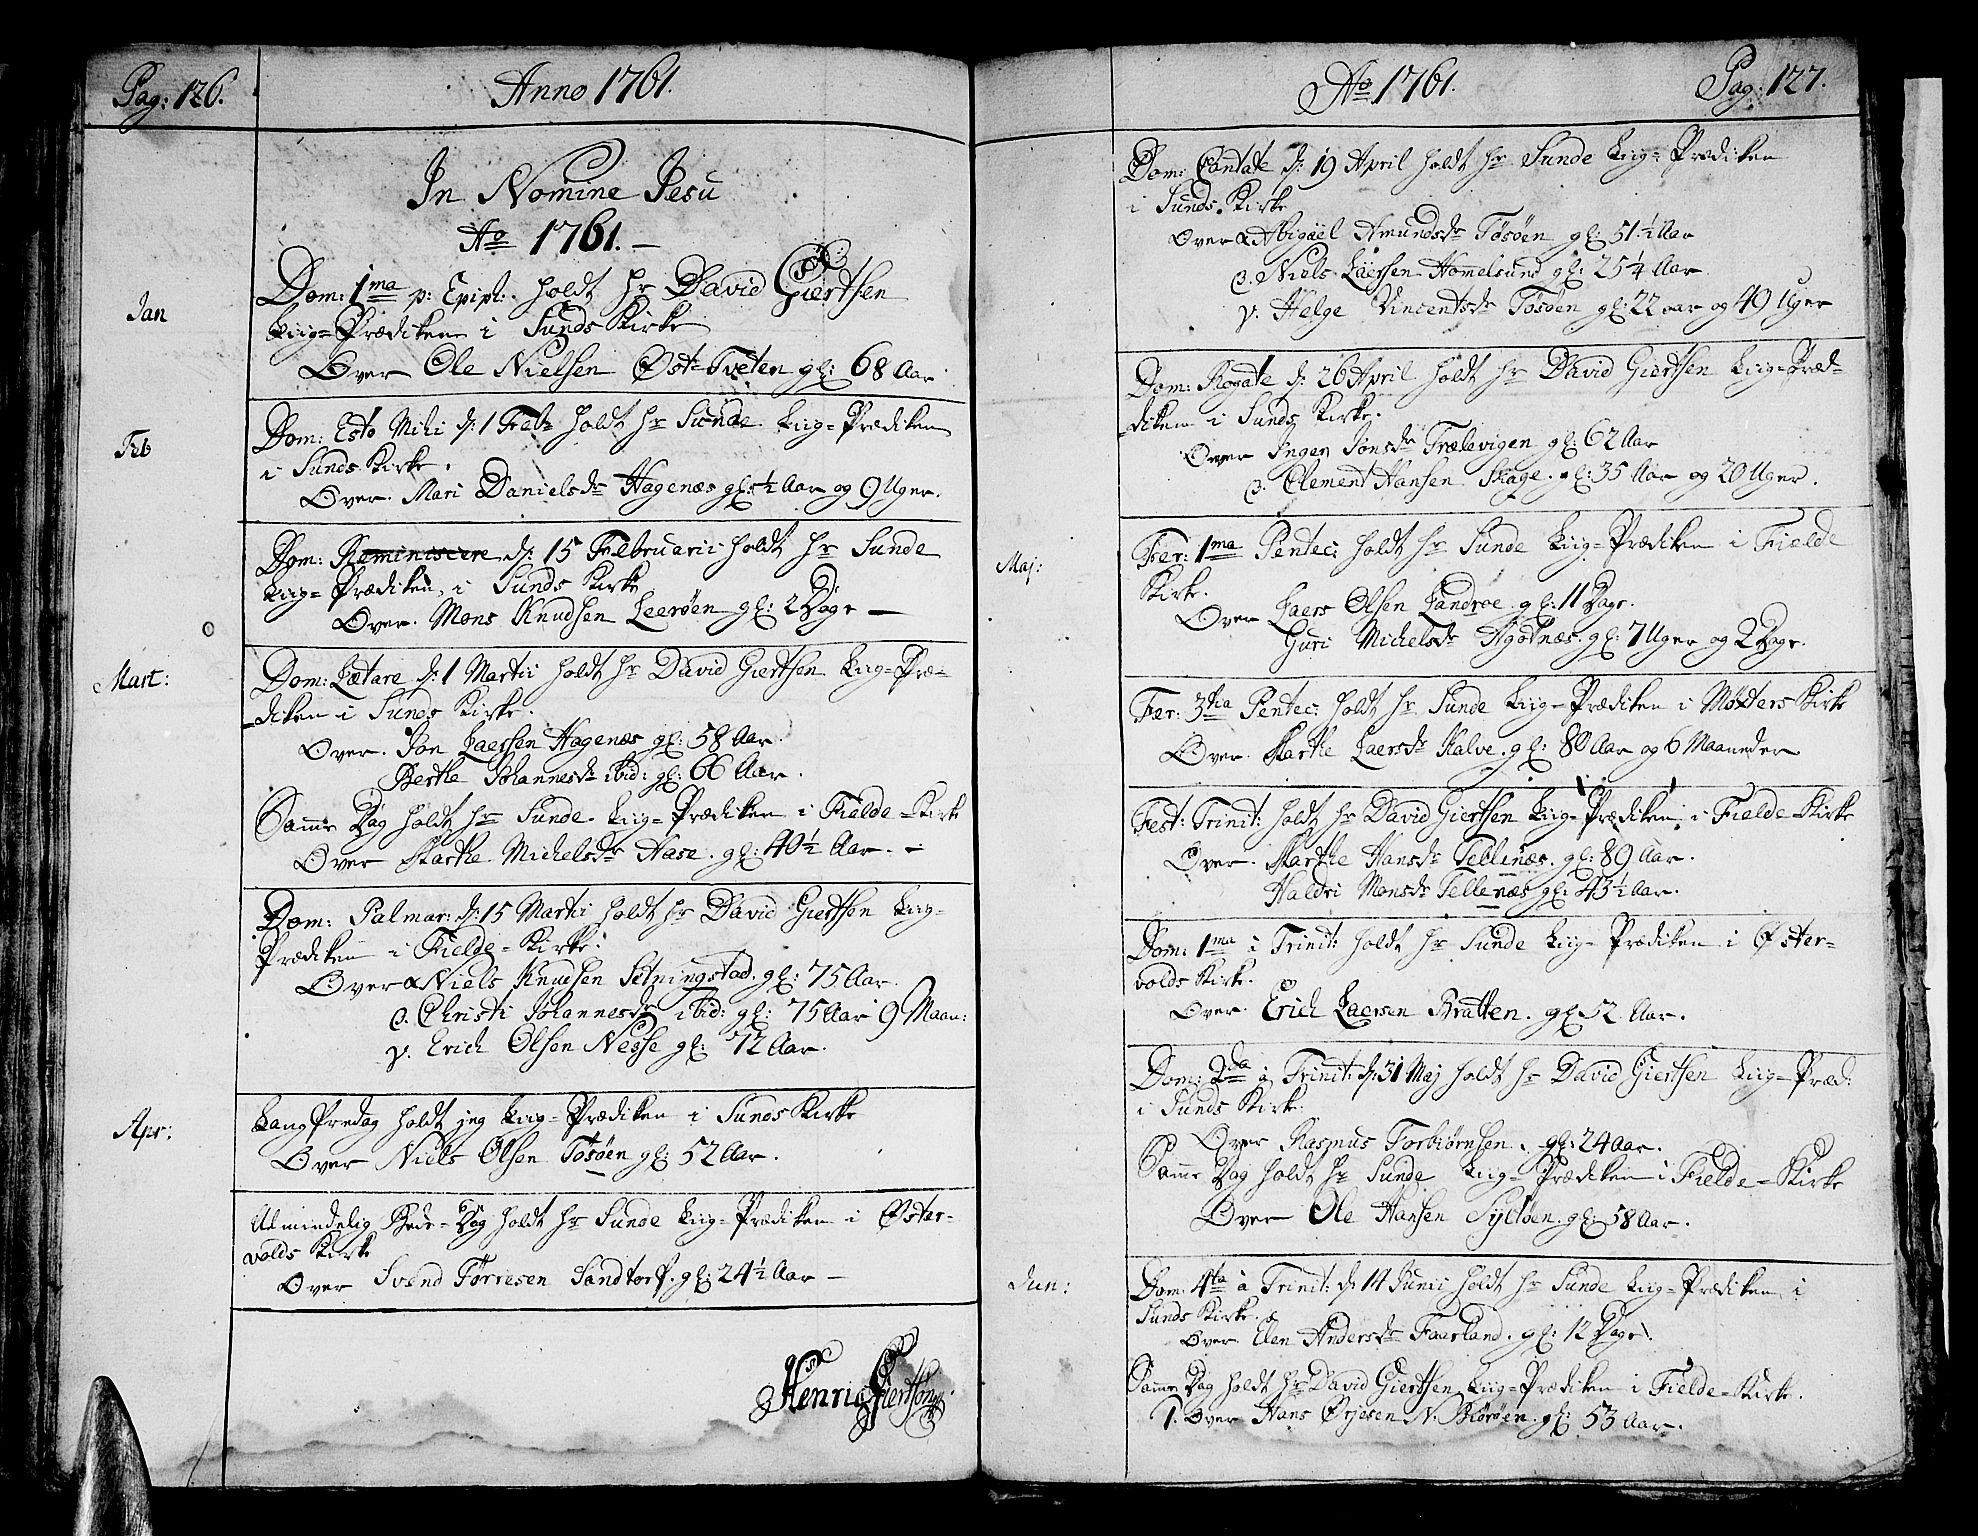 Pag: 126.
Anno 1761.
In Nomine Jesu
Ao 1761. —
Jan
Dom: 1ma p: Epiph: holdt hr David Giertsen
Liig-Prædiken i Sunds Kirke
Over Ole Nielsen Øst-Tveten gl: 68 Aar
Feb
Dom: Esto Mihi d: 1 Febr holdt hr Sunde Liig-Prædiken
i Sunds Kirke.
Over. Mari Danielsdr Hagenæs gl: ½ Aar og 9 Uger.
Dom: Reminiscere d: 15 Februarii holdt hr Sunde
Liig-Prædiken, i Sunds Kirke
Over. Mons Knudsen Leerøen gl: 2 Dage —
Mart:
Dom: Lætare d: 1 Martii holdt hr David Giertsen Liig-Præ-
diken i Sunds Kirke.
Over. Jon Laersen Hagenæs gl: 58 Aar.
Berthe Johannesdr ibid: gl: 66 Aar.
Samme Dag holdt hr Sunde. Liig-Prædiken i Fielde-Kirke
Over Marthe Michelsdr Aase. gl: 40½ Aar. —
Dom: Palmar: d: 15 Martii holdt hr David Giertsen Liig-
Prædiken i Fielde-Kirke.
Over α Niels Knudsen Setningstad. gl: 75 Aar.
β. Christi Johannesdr ibid: gl: 75 Aar 9 Maan:
γ. Erich Olsen Nesse gl: 72 Aar.
Apr:
Lang Fredag holdt jeg Liig-Prædiken i Sunds Kirke
Over Niels Olsen Tøsøen gl: 52 Aar.
Almindelig Bede-Dag holdt hr Sunde Liig-Prædiken i Øster-
volds Kirke
Over Svend Tørresen Sandtorf. gl: 24½ Aar —
Henric Giertsøn
Ao 1761.
Pag: 127.
Dom: Cantate d: 19 April holdt hr Sunde Liig-Prædiken
i Sunds. Kirke
Over α Abigael Amundsdr Tøsøen gl: 51½ Aar
β. Niels Laersen Hommelsund gl: 25¼ Aar
γ. Helge Vincentsdr Tøsøen gl: 22 aar og 49 Uger
Dom: Rogate d: 26 April holdt hr David Giertsen Liig-Præd-
diken i Sunds Kirke.
Over Ingen Jonsdr Trælevigen gl: 62 Aar
β. Clement Hansen Skage. gl: 35 Aar og 20 Uger.
Maj:
Fer: 1ma Pentec: holdt hr Sunde Liig-Prædiken i Fielde
Kirke.
Over Laers Olsen Landroe. gl: 11 Dage.
Guri Michelsdr Agotnæs. gl: 7 Uger og 2 Dage.
Fer: 3tia Pentec: holdt hr Sunde Liig-Prædiken i Møxters Kirke
Over. Marthe Laersdr Kalve. gl: 80 Aar og 6 Maaneder
Fest: Trinit: holdt hr David Giertsen Liig-Prædiken i Fielde-Kirke
Over. Marthe Hansdr Tellenæs. gl: 89 Aar.
Haldri Monsdr Tellenæs gl: 43½ Aar.
Dom: 1ma à Trinit: holdt hr Sunde Liig-Prædiken i Øster-
volds Kirke.
Over. Erich Laersen Bratten. gl: 52 Aar.
Dom: 2da à Trinit: d: 31 Maj holdt hr David Giertsen Liig-Præd:
i Sunds Kirke.
Over Rasmus Torbiørnsen. gl: 24 Aar.
Samme Dag holdt hr Sunde Liig-Prædiken i Fielde-Kirke
Over Ole Hansen Syltøen. gl: 58 Aar.
Jun:
Dom: 4ta à Trinit: d: 14 Junii holdt hr Sunde Liig-Prædiken i
Sunds Kirke.
Over Elen Andersdr Faarland. gl: 12 Dage.
Samme Dag holdt hr David Giertsen Liig-Prædiken i Fielde-Kirke.
1. Over Hans Ørjesen N. Biorøen. gl: 53 Aar.